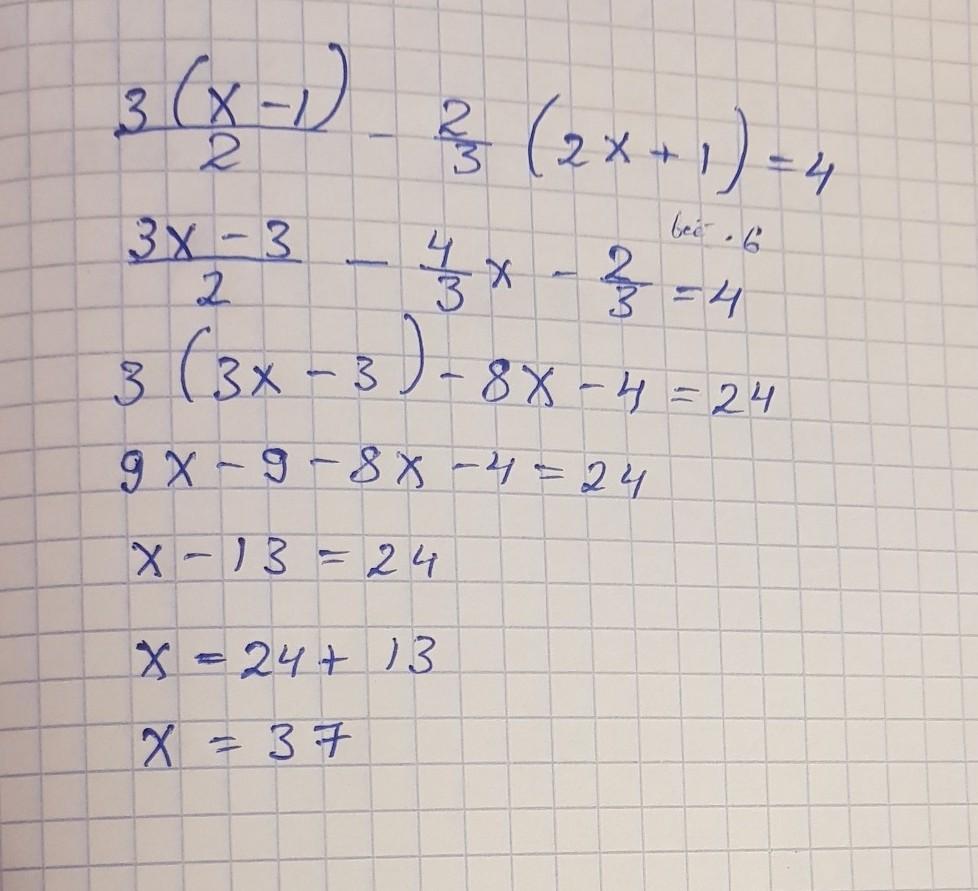 3(x-1)/2 - 2/3 (2x+1) = 4
(3x-3)/2 - 4/3 x - 2/3 = 4 · 6
3(3x-3) - 8x - 4 = 24
9x - 9 - 8x - 4 = 24
x - 13 = 24
x = 24 + 13
x = 37